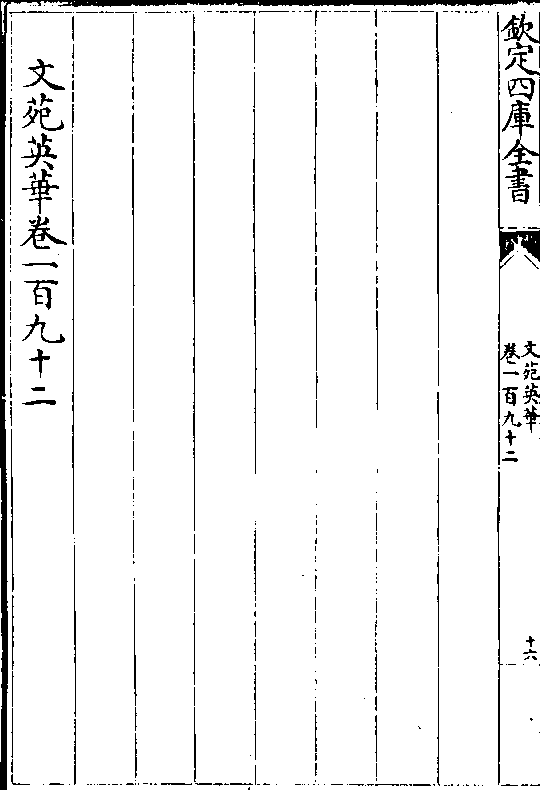 欽定四庫全書
文苑英華
卷一百九十二
十六
文苑英華卷一百九十二